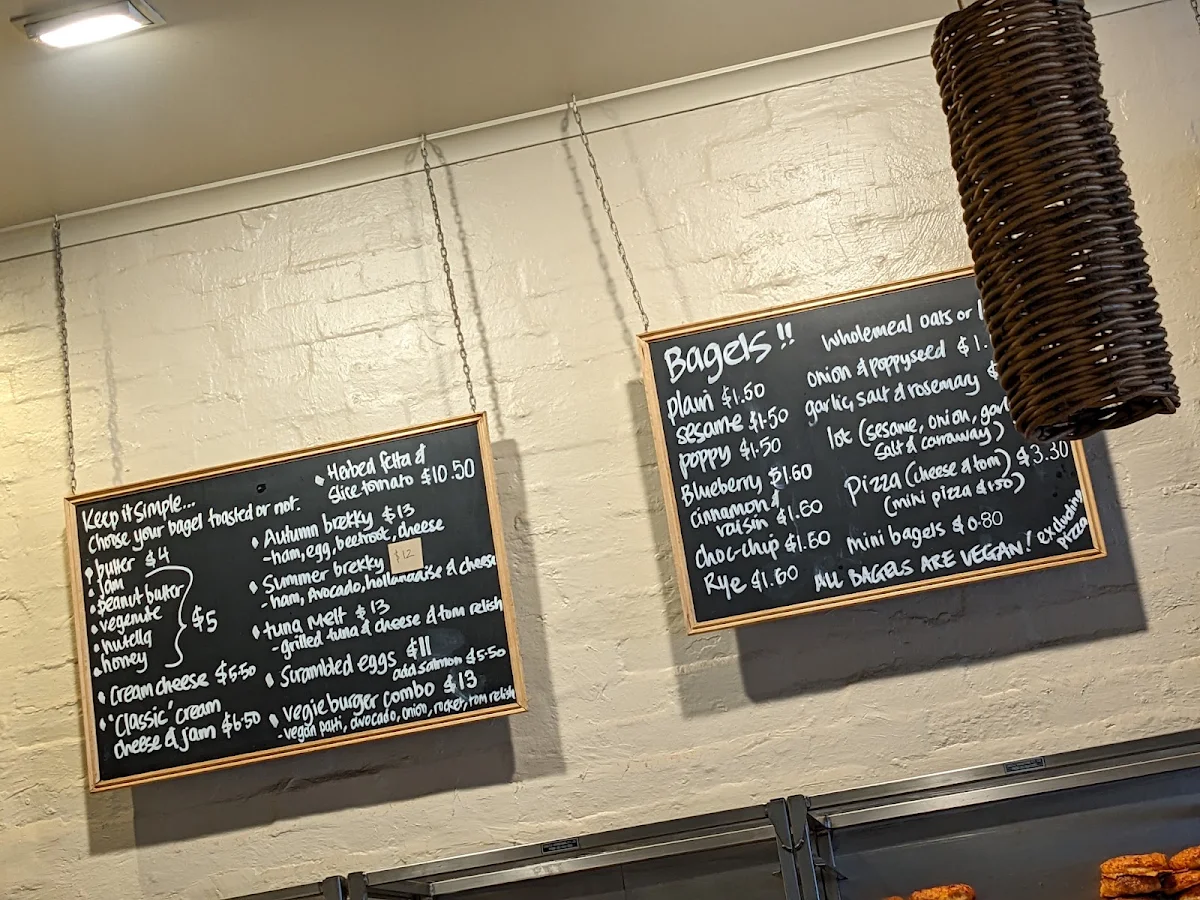 Keep it Simple...
Choose your bagel toasted or not.
• butter $4
• Jam
• Peanut butter
• vegemite
• nutella
• honey
$5
• Cream cheese $5.50
• "Classic" cream
cheese & Jam $6.50
• Herbed fetta &
Slice tomato $10.50
• Autumn brekky $13
-ham, egg, beetroot, cheese
• Summer brekky $12
- ham, Avocado, hollandaise & cheese
• tuna Melt $13
-grilled tuna & cheese & tom relish
• Scrambled eggs $11
add salmon $5.50
• vegie burger combo $13
- vegan patti, avocado, onion, rocket, tom relish
Bagels !!
plain $1.50
sesame $1.50
poppy $1.50
Blueberry $1.60
cinnamon &
raisin $1.60
choc-chip $1.60
Rye $1.60
wholemeal oats or
onion & poppyseed $1.
garlic, salt & rosemary $
lot (sesame, onion,
Salt & carraway)
Pizza (cheese & tom) $3.30
(mini pizza $1.50)
mini bagels $0.80
ALL BAGELS ARE VEGAN! excluding
pizza